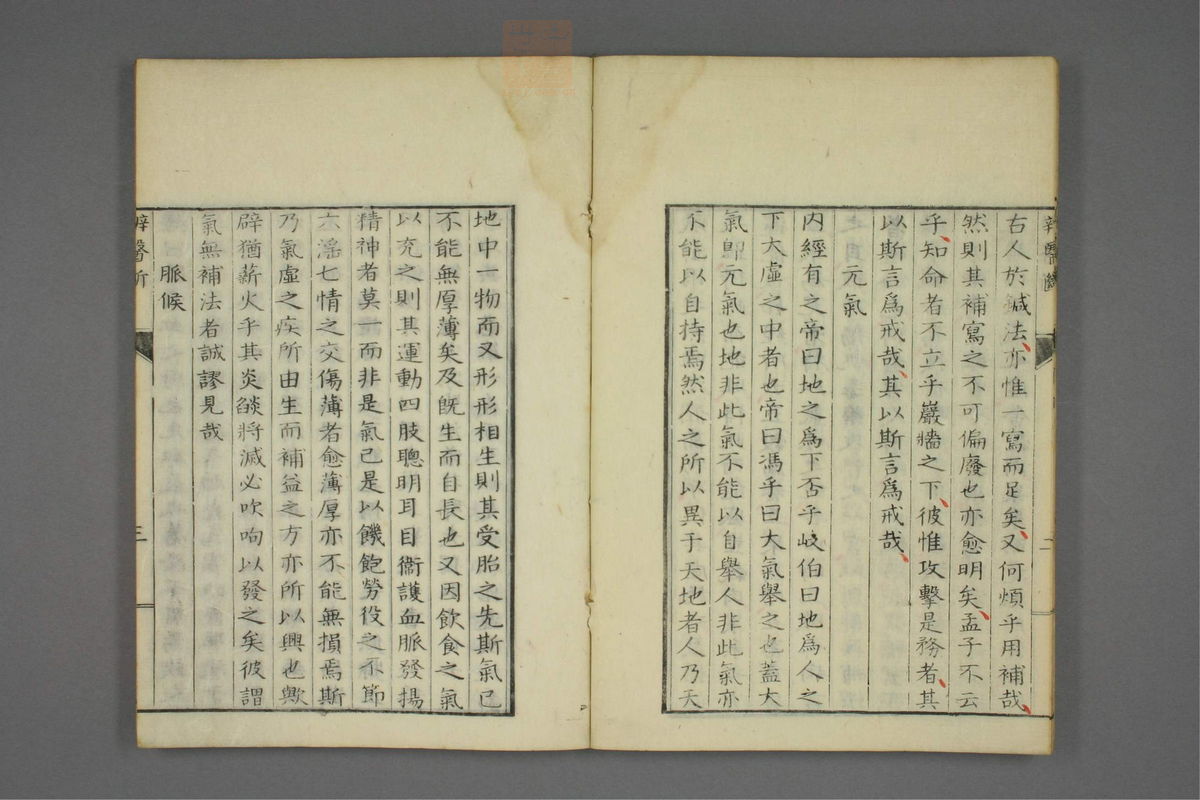 古人於鍼法亦惟一寫而足矣又何煩乎用補哉
然則其補寫之不可偏廢也亦愈明矣孟子不云
乎知命者不立乎巖牆之下彼惟攻擊是務者其
以斯言爲戒哉其以斯言爲戒哉
元氣
内經有之帝曰地之爲下否乎岐伯曰地爲人之
下大虛之中者也帝曰馮乎曰大氣舉之也蓋大
氣卽元氣也地非此氣不能以自舉人非此氣亦
不能以自持焉然人之所以異于天地者人乃天
地中一物而又形形相生則其受胎之先斯氣已
不能無厚薄矣及旣生而自長也又因飲食之氣
以充之則其運動四肢聰明耳目衞護血脈發揚
精神者莫一而非是氣已是以饑飽勞役之不節
六淫七情之交傷薄者愈薄厚亦不能無損焉斯
乃氣虛之疾所由生而補益之方亦所以興也歟
辟猶薪火乎其炎燄將滅必吹呴以發之矣彼謂
氣無補法者誠謬見哉
脈候
辨醫
三